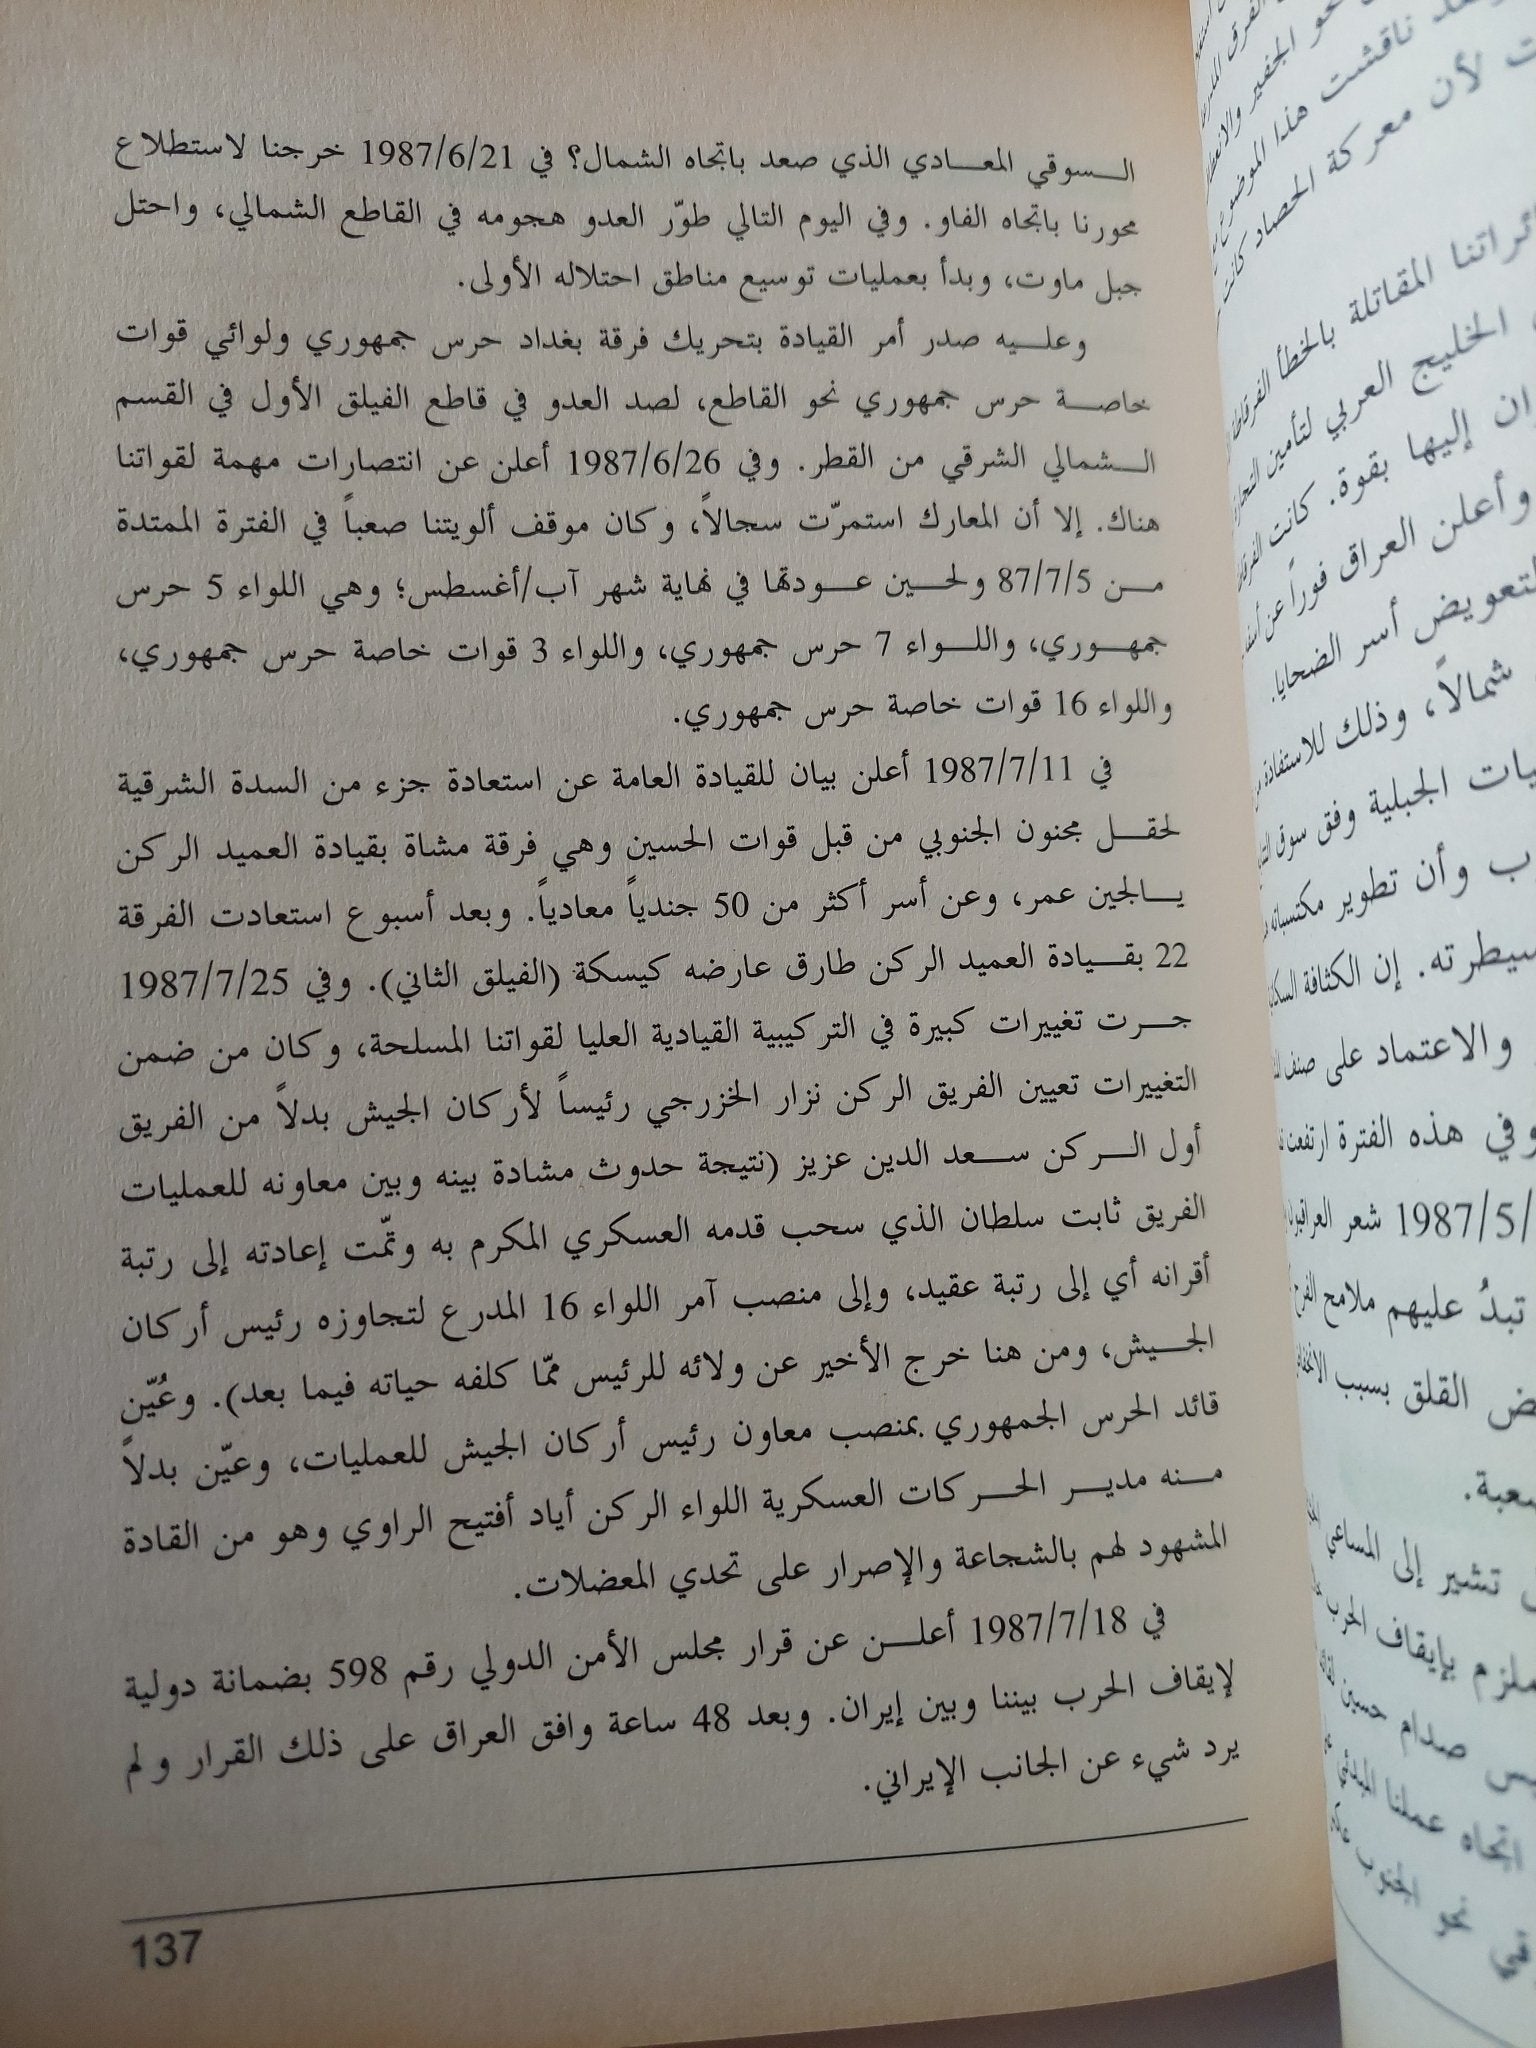 السوقي المعادي الذي صعد باتجاه الشمال؟ في 1987/6/21 خرجنا لاستطلاع
محورنا باتجاه الفاو. وفي اليوم التالي طوّر العدو هجومه في القاطع الشمالي، واحتل
جبل ماوت، وبدأ بعمليات توسيع مناطق احتلاله الأولى.
وعليه صدر أمر القيادة بتحريك فرقة بغداد حرس جمهوري ولوائي قوات
خاصة حرس جمهوري نحو القاطع، لصد العدو في قاطع الفيلق الأول في القسم
الشمالي الشرقي من القطر. وفي 1987/6/26 أعلن عن انتصارات مهمة لقواتنا
هناك. إلا أن المعارك استمرّت سجالاً، وكان موقف ألويتنا صعباً في الفترة الممتدة
من 87/7/5 ولحين عودتها في نهاية شهر آب/أغسطس؛ وهي اللواء 5 حرس
جمهوري، واللواء 7 حرس جمهوري، واللواء 3 قوات خاصة حرس جمهوري،
واللواء 16 قوات خاصة حرس جمهوري.
في 1987/7/11 أعلن بيان للقيادة العامة عن استعادة جزء من السدة الشرقية
لحقل مجنون الجنوبي من قبل قوات الحسين وهي فرقة مشاة بقيادة العميد الركن
يالجين عمر، وعن أسر أكثر من 50 جندياً معادياً. وبعد أسبوع استعادت الفرقة
22 بقيادة العميد الركن طارق عارضه كيسكة (الفيلق الثاني). وفي 1987/7/25
جرت تغييرات كبيرة في التركيبية القيادية العليا لقواتنا المسلحة، وكان من ضمن
التغييرات تعيين الفريق الركن نزار الخزرجي رئيساً لأركان الجيش بدلاً من الفريق
أول الركن سعد الدين عزيز (نتيجة حدوث مشادة بينه وبين معاونه للعمليات
الفريق ثابت سلطان الذي سحب قدمه العسكري المكرم به وتمّت إعادته إلى رتبة
أقرانه أي إلى رتبة عقيد، وإلى منصب آمر اللواء 16 المدرع لتجاوزه رئيس أركان
الجيش، ومن هنا خرج الأخير عن ولائه للرئيس ممّا كلفه حياته فيما بعد). وعُيّن
قائد الحرس الجمهوري بمنصب معاون رئيس أركان الجيش للعمليات، وعيّن بدلاً
منه مدير الحركات العسكرية اللواء الركن أياد أفتيح الراوي وهو من القادة
المشهود لهم بالشجاعة والإصرار على تحدي المعضلات.
في 1987/7/18 أعلن عن قرار مجلس الأمن الدولي رقم 598 بضمانة دولية
لإيقاف الحرب بيننا وبين إيران. وبعد 48 ساعة وافق العراق على ذلك القرار ولم
يرد شيء عن الجانب الإيراني.
137
ناقشت هذا الموضوع
لأن معركة الحصاد كانت
المقاتلة بالخطأ الفرقاطة
الخليج العربي لتأمين
إليها بقوة. كانت
وأعلن العراق فوراً عن
لتعويض أسر الضحايا.
شمالاً، وذلك للاستفادة
الجبلية وفق سوق
وأن تطوير مكتسباته
سيطرته. إن الكثافة
والاعتماد على صنف
وفي هذه الفترة ارتفعت
1987/5/ شعر العراقيون
تبدُ عليهم ملامح الفرح
القلق بسبب
تشير إلى المساعي
ملزم بإيقاف الحرب
صدام حسين
اتجاه عملنا
نحو